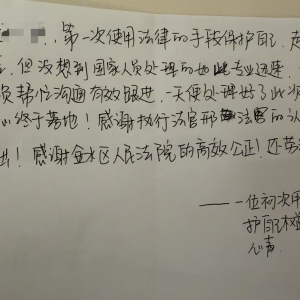 第一次使用法律的手段保护自己,
,但没想到国家人员处理的如此专业迅速,
员帮忙沟通有效跟进,一天便处理好了此次
心终于落地!感谢执行法官邢法官的认
出!感谢金水区人民法院的高效公正!还
——一位初次用
护自己权
心声.